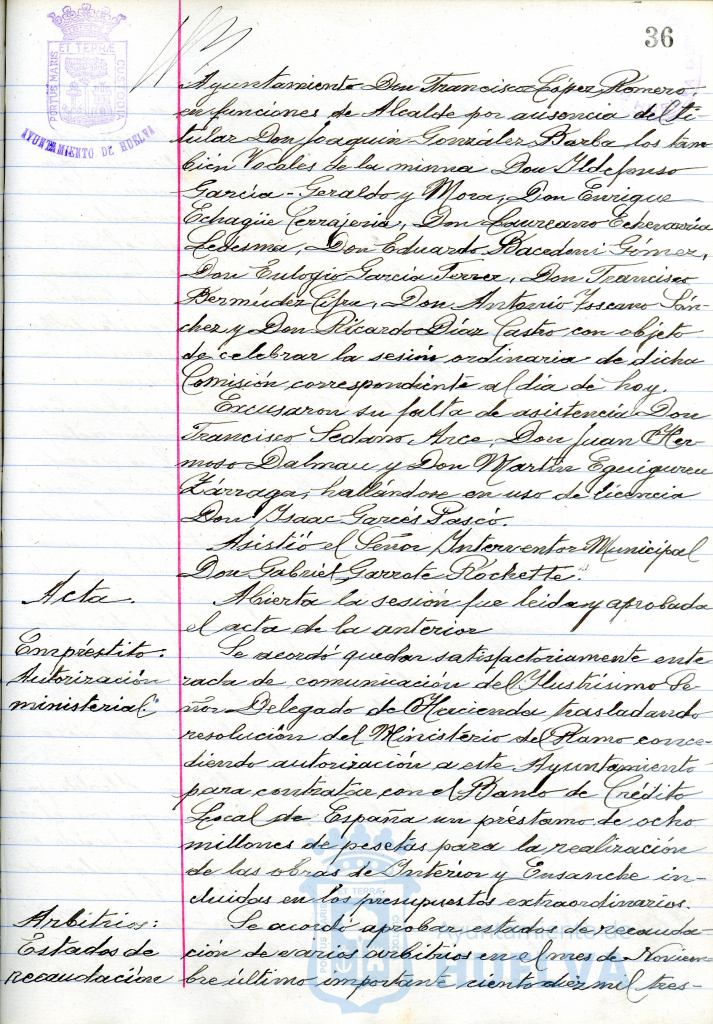 36
ET TERRÆ
PORTUS MARIS
CUSTODIA
AYUNTAMIENTO DE HUELVA
Ayuntamiento Don Francisco López Romero
en funciones de Alcalde por ausencia del ti-
tular Don Joaquín González Barba los tam-
bién Vocales de la misma Don Ildefonso
García-Geraldo y Mora, Don Enrique
Echagüe Cerrajería, Don Laureano Echevarría
Ledesma, Don Eduardo Bacedoni Gómez,
Don Eulogio García Ferrer, Don Francisco
Bermúdez Cifre, Don Antonio Toscano Sán-
chez y Don Ricardo Díaz Castro con objeto
de celebrar la sesión ordinaria de dicha
Comisión correspondiente al día de hoy.
Excusaron su falta de asistencia Don
Francisco Sedano Arce, Don Juan Her-
moso Dalmau y Don Martín Eguiguren
Zárraga, hallándose en uso de licencia
Don Isaac Garcés Pascó.
Asistió el Señor Interventor Municipal
Don Gabriel Garrote Rochette.
Acta.
Abierta la sesión fue leida y aprobada
el acta de la anterior
Empréstito.
Autorización
ministerial.
Se acordó quedar satisfactoriamente ente
rada de comunicación del Ilustrísimo Se
ñor Delegado de Hacienda trasladando
resolución del Ministerio del Ramo conce-
diendo autorización a este Ayuntamiento
para contratar con el Banco de Crédito
Local de España un préstamo de ocho
millones de pesetas para la realización
de las obras de Interior y Ensanche in-
cluidas en los presupuestos extraordinarios.
Arbitrios:
Estados de
recaudación
Se acordó aprobar estados de recauda-
ción de varios arbitrios en el mes de Noviem
bre último importante ciento diez mil tres-
ET TERRÆ
PORTUS MARIS
CUSTODIA
Ayuntamiento de
HUELVA